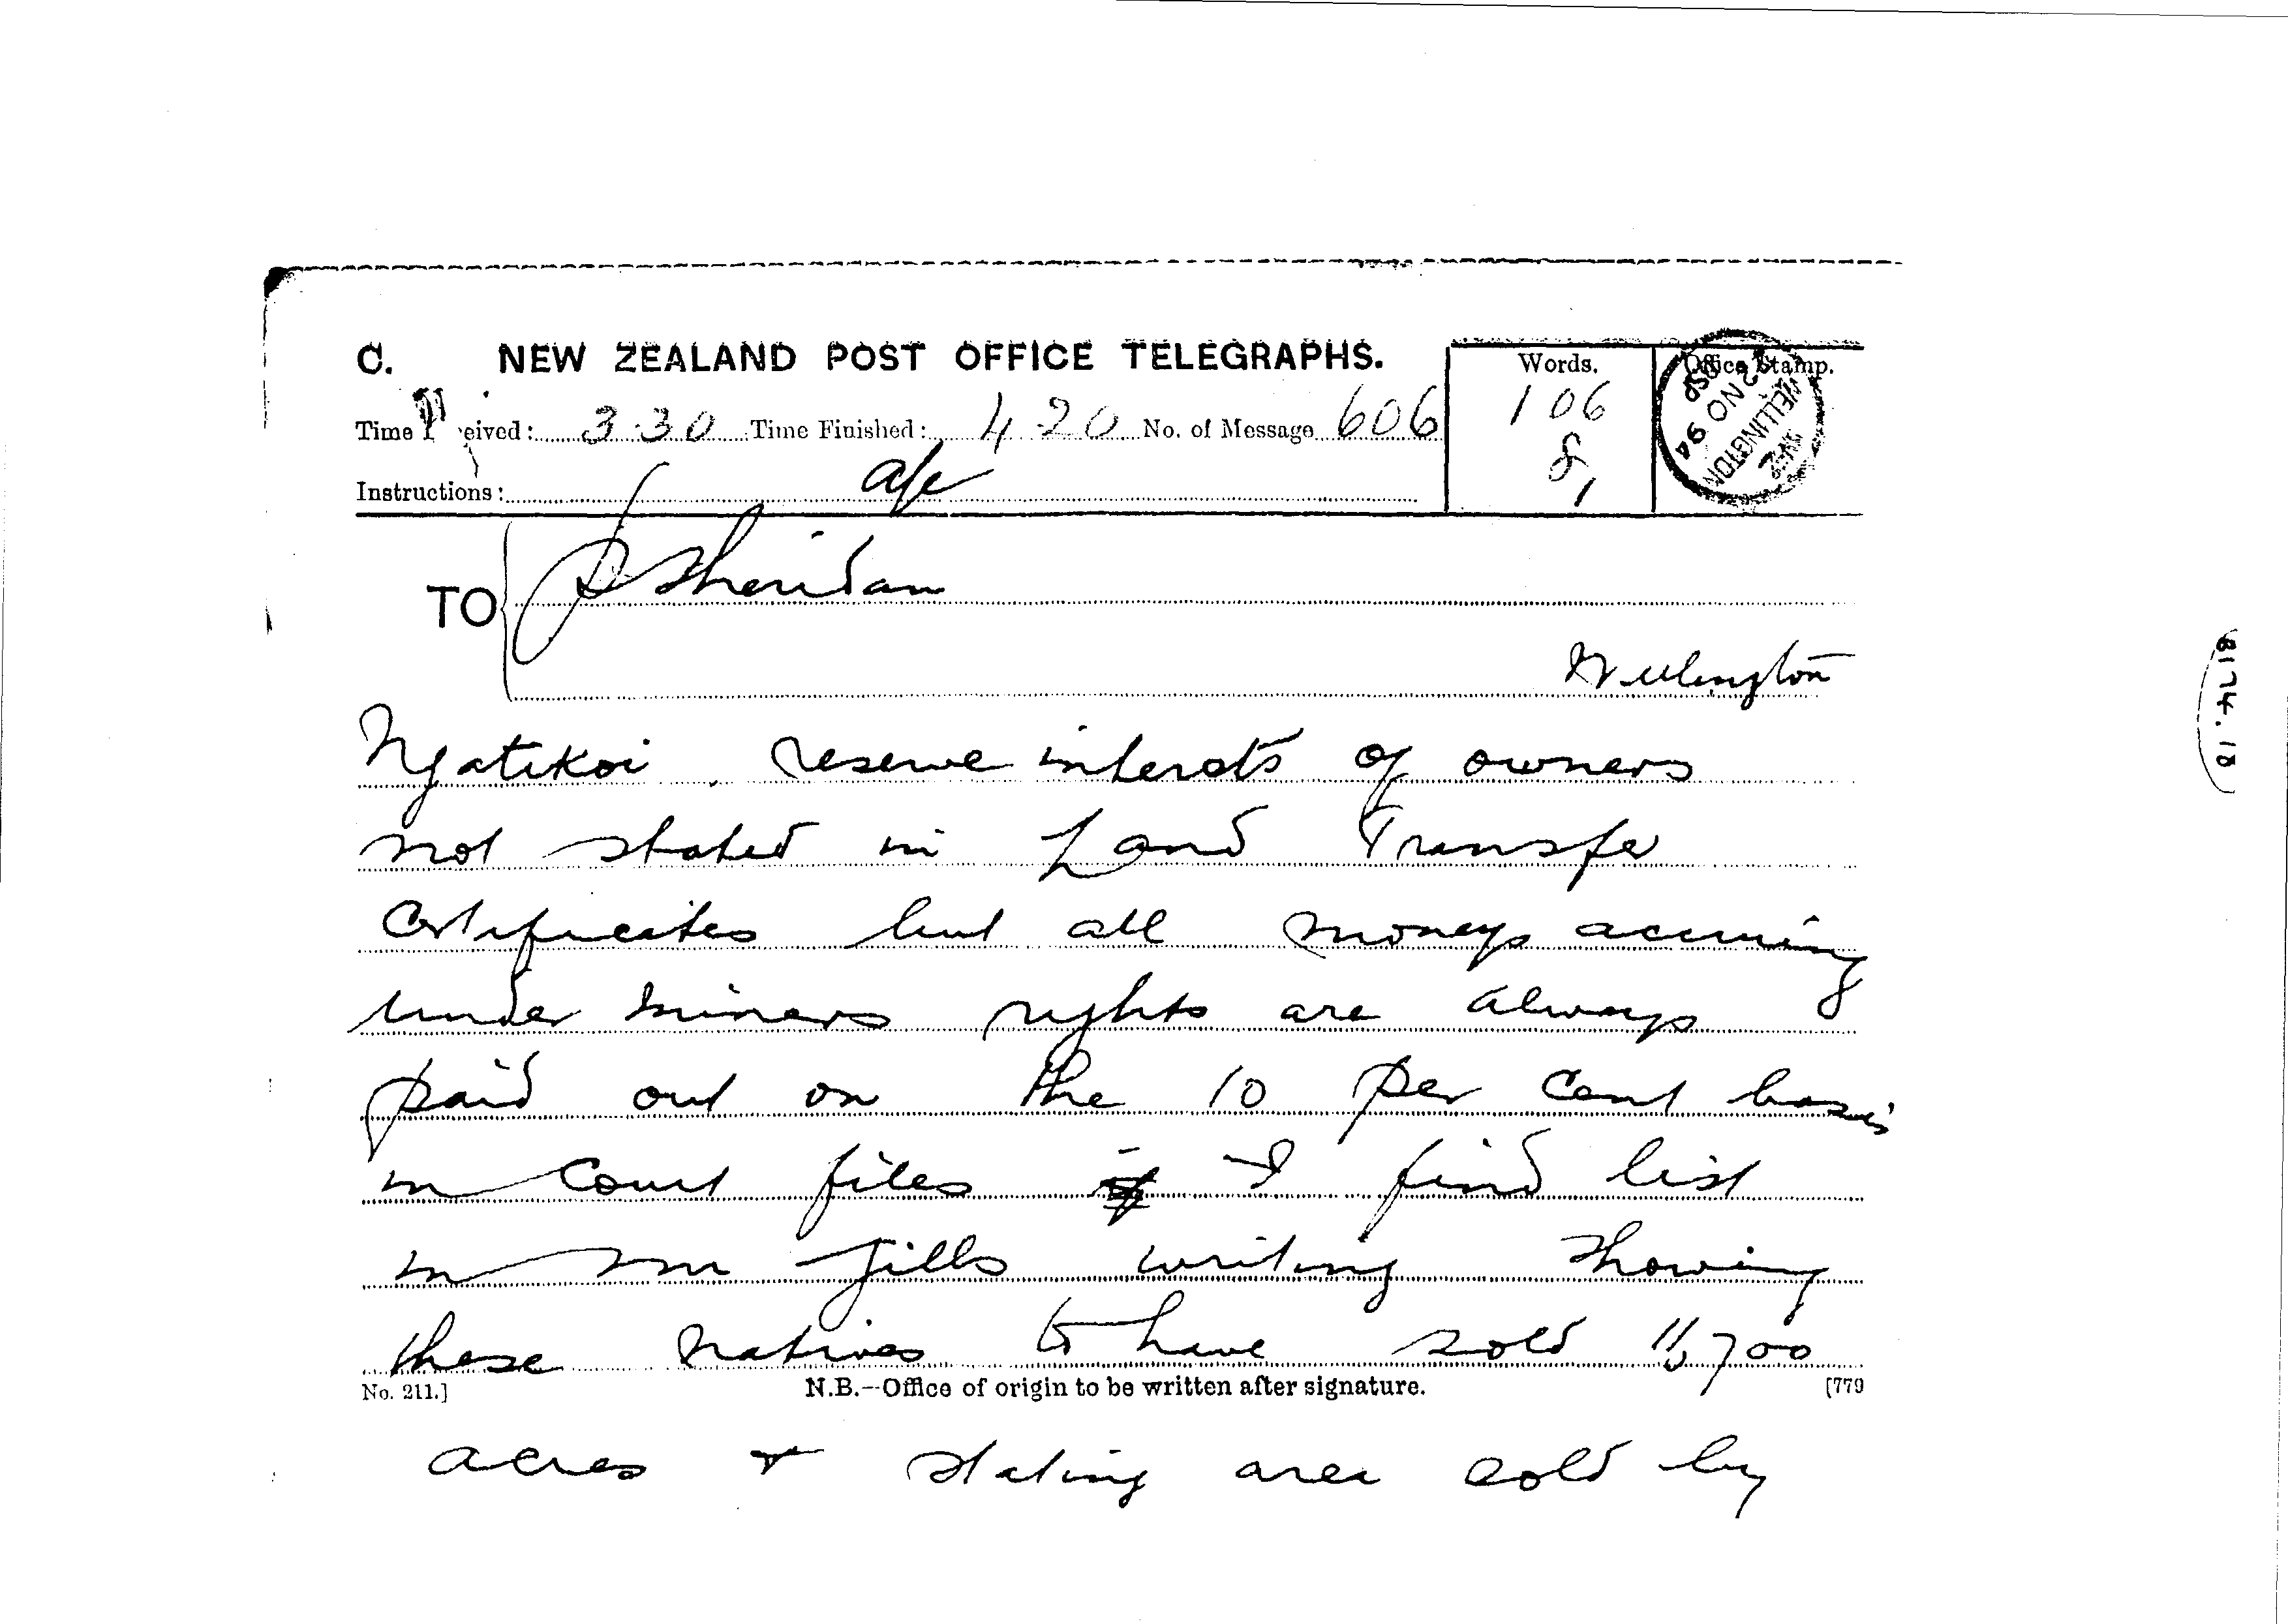 C. NEW ZEALAND POST OFFICE TELEGRAPHS.
Words.
Office Stamp.
Time eived: 3.30 Time Finished: 4.20 No. of Message 606
106
WELLINGTON
2 NO 94
Instructions:
TO P Sheridan
Wellington
Ngatikoi reserve interests of owners
not stated in Land Transfer
Certificates but all moneys accruing
under miners rights are always
paid out on the 10 per cent basis
in Court files I find list
in Mr Gills writing showing
these natives to have sold 11,700
No. 211.] N.B.--Office of origin to be written after signature. [779
acres + stating area sold by
8174.18